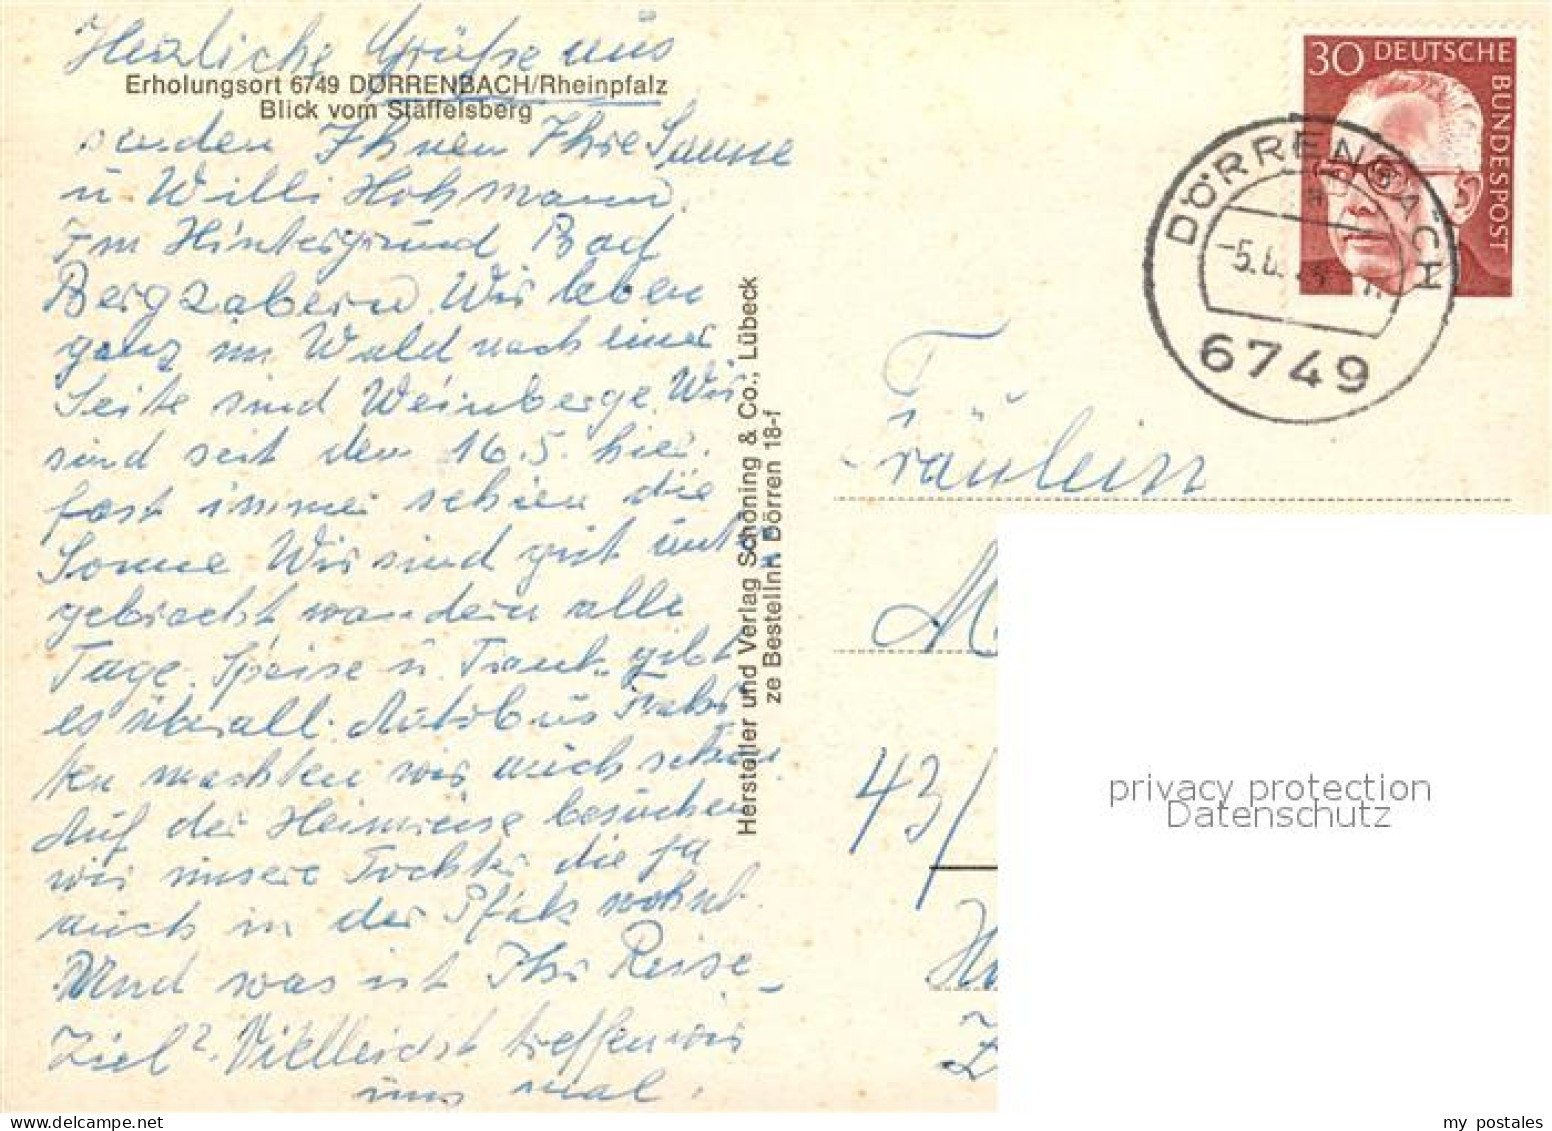 Herzliche Grüße aus
Erholungsort 6749 DÖRRENBACH/Rheinpfalz
Blick vom Stäffelsberg
senden Ihnen Ihre
u. Willi
Im Hintergrund Bad
Bergzabern. Wir leben
ganz im Wald nach einer
Seite sind Weinberge. Wir
sind seit dem 16.5. hier.
fast immer schien die
Sonne. Wir sind gut unter
gebracht wandern alle
Tage. Speise u. Trank gibt
es überall. Autobus
ten machten wir auch schon
Auf der Heimreise besuchen
wir unsere Tochter die ja
auch in der Pfalz wohnt.
Und was ist Ihr Reise-
Ziel? Vielleicht treffen wir
uns mal.
Hersteller und Verlag Schöning & Co., Lübeck
ze Bestellnr. Dörren 18-f
30 DEUTSCHE
BUNDESPOST
DÖRRENBACH
6749
Fräulein
43/
privacy protection
Datenschutz
my postales